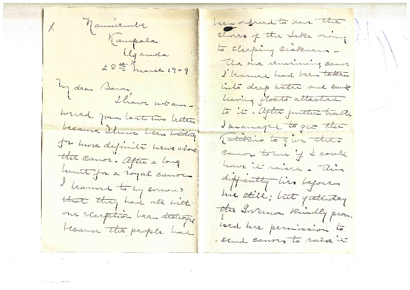 Namirembe
Kampala
Uganda
28th March 1909
My dear Baron,
I have not ans-
wered your last two letters
because I have been waiting
for more definite news about
the canoe. After a long
hunt for a royal canoe
I learned to my sorrow
that they had all with
one exception been destroyed
because the people had
been ordered to leave the
shores of the Lake owing
to sleeping sickness.
The one remaining canoe
I learned had been taken
into deep water and sunk
having floats attached
to it. After further trouble
I managed to get the
Katikiro to give the
canoe to me if I could
have it raised. This
difficulty lies before
me still; but yesterday
the Governor kindly prom-
ised me permission to
send canoes to raise it